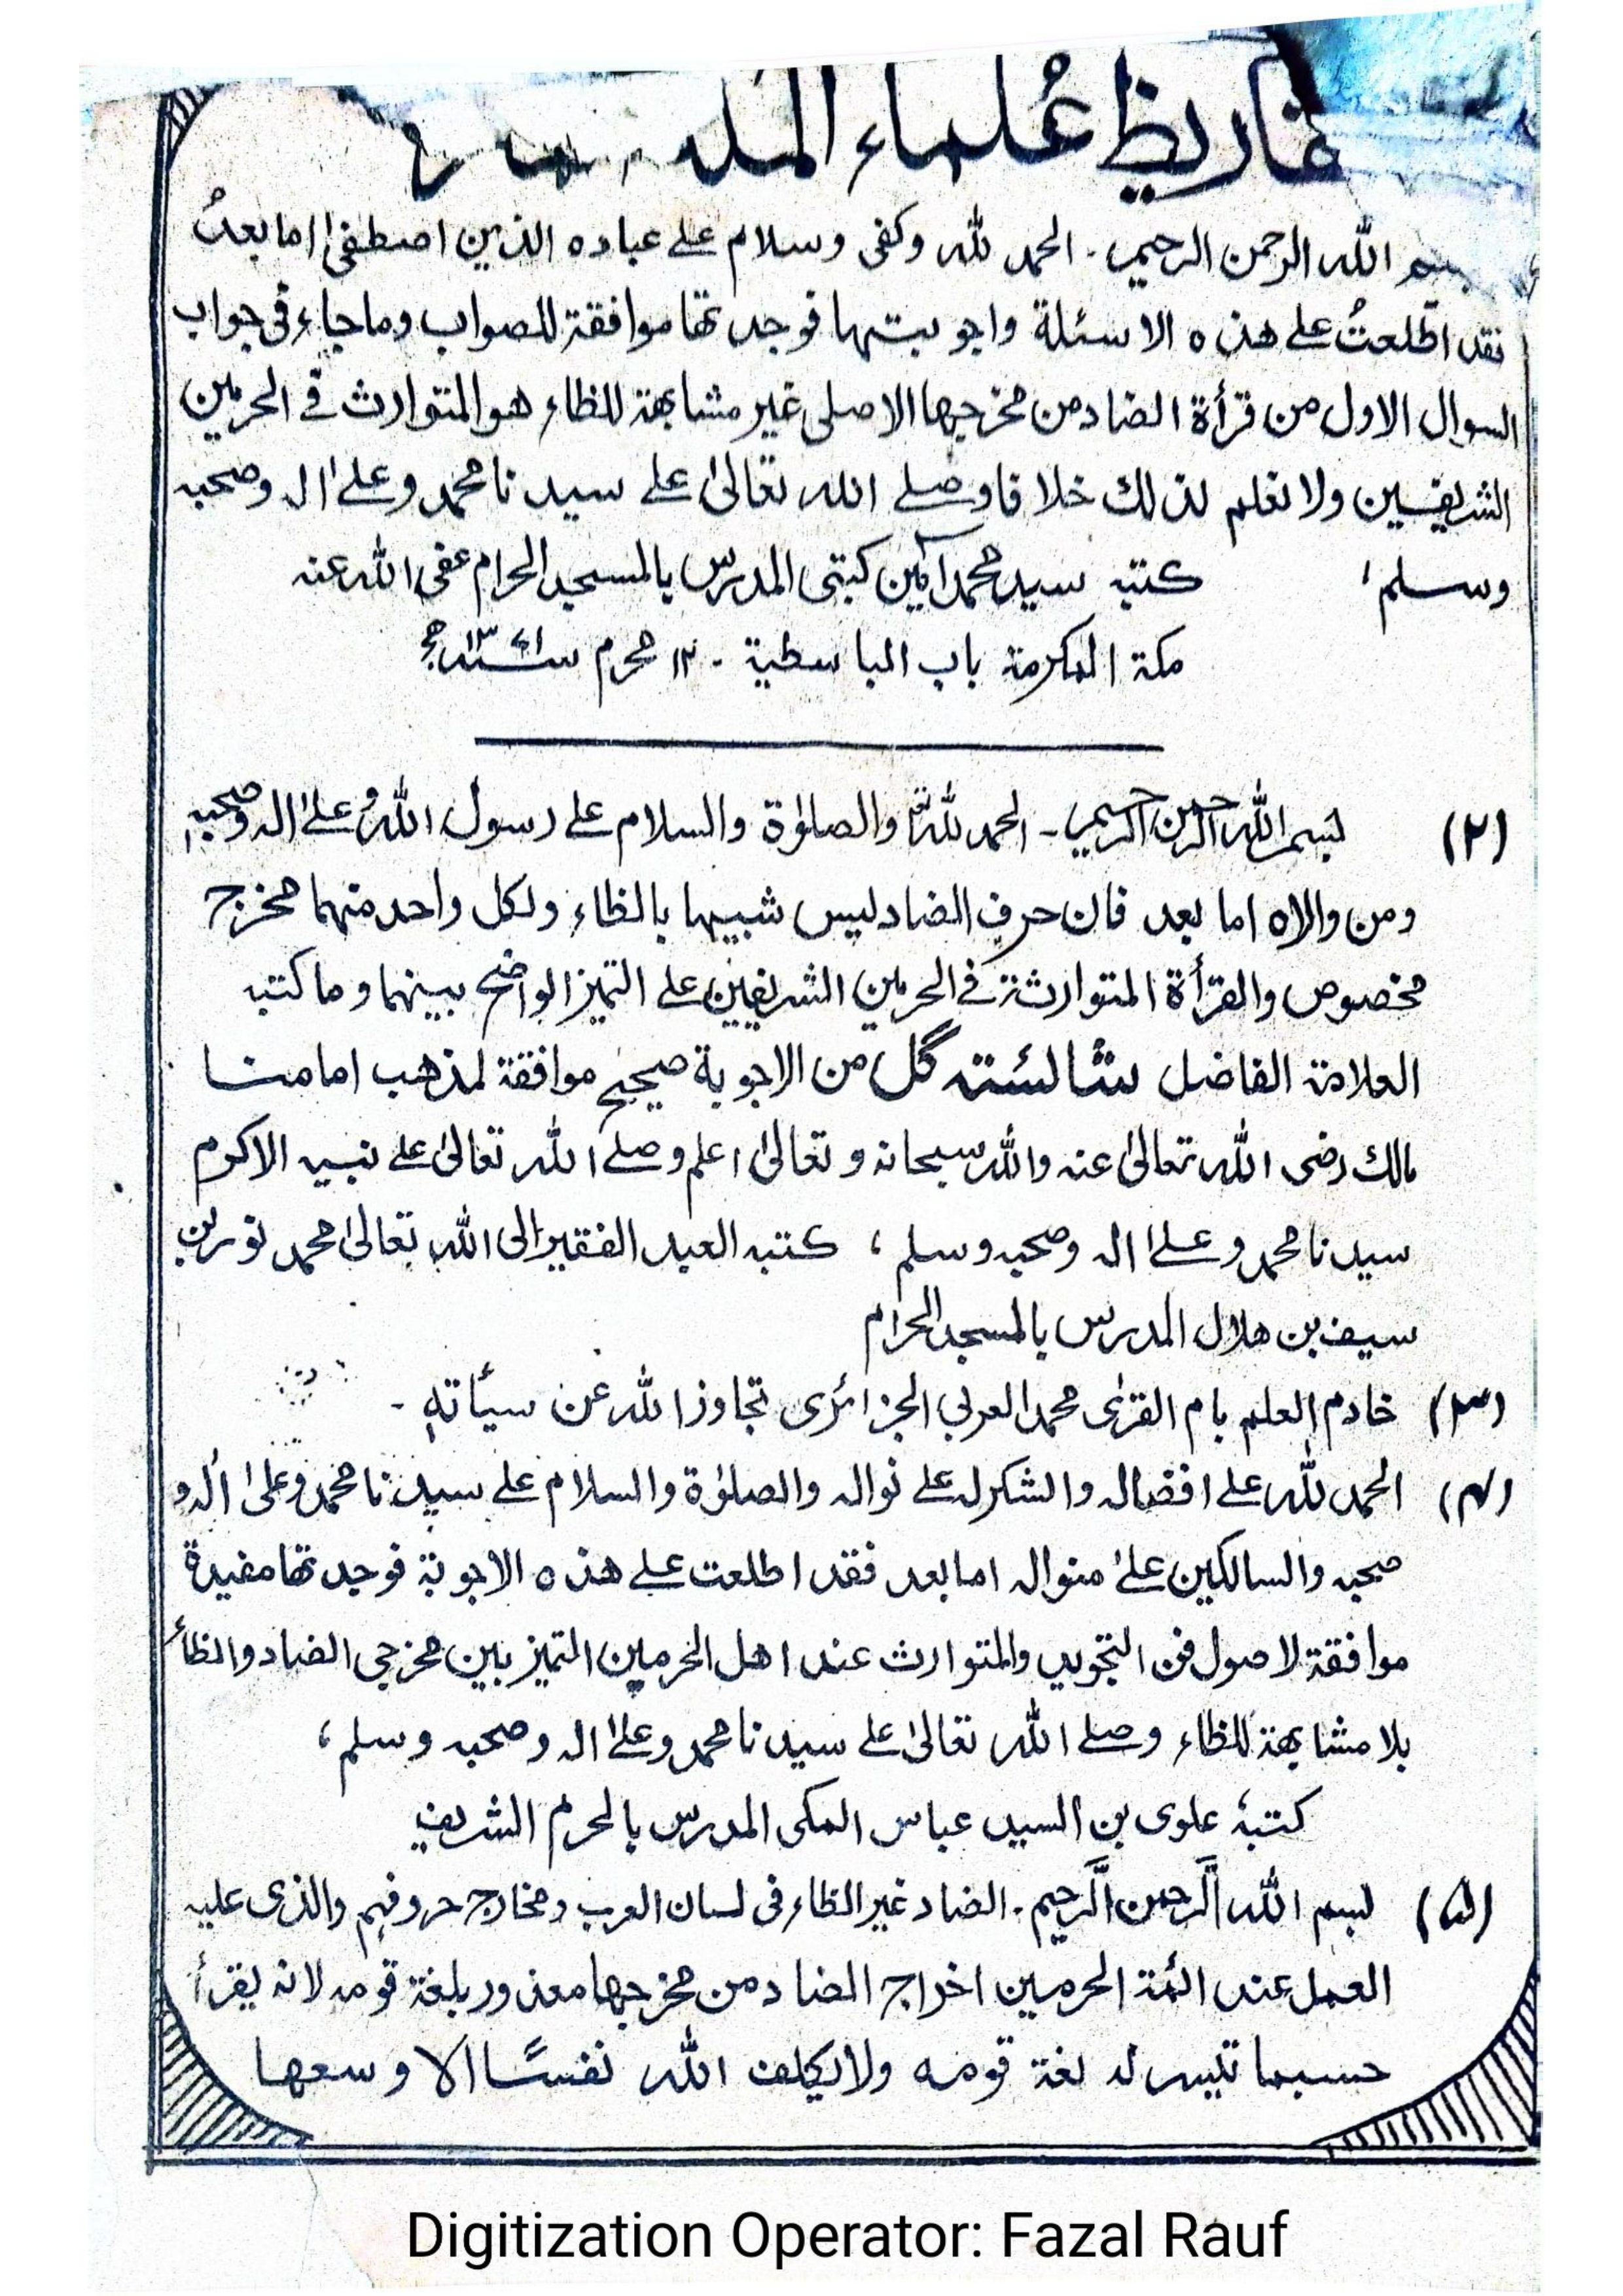 تقاريظ عُلماء
بسم الله الرحمن الرحيم . الحمد لله وكفى وسلام علے عباده الذين اصطفىٰ اما بعدُ
فقد اطّلعتُ علے هذه الاسئلة واجوبتها فوجدتها موافقة للصواب وماجاء فى جواب
السوال الاول من قرأة الضاد من مخرجها الاصلى غير مشابهة للظاء هو المتوارث فے الحرمين
الشريفين ولا نعلم لذلك خلافا وصلے الله تعالىٰ علے سيدنا محمد وعلےٰ اله وصحبه
وسلم، كتبه سيد محمد آمين كتبى المدرس بالمسجد الحرام عفى الله عنه
مكة المكرمة باب الباسطية ۔ ١٢ محرم سنه ١٣٧١ھ
(٢) بسم الله الرحمن الرحيم ۔ الحمد لله والصلوٰة والسلام علے رسول الله وعلےٰ اله وصحبه
ومن والاه اما بعد فان حرف الضاد ليس شبيها بالظاء ولكل واحد منهما مخرج
مخصوص والقرأة المتوارثة فے الحرمين الشريفين علے التميز الواضح بينهما وما كتبه
العلامة الفاضل شائسته گل من الاجوبة صحيح موافقة لمذهب امامنا
مالك رضى الله تعالىٰ عنه والله سبحانه وتعالىٰ اعلم وصلے الله تعالىٰ علے نبيه الاكرم
سيدنا محمد وعلےٰ اله وصحبه وسلم ، كتبه العبد الفقير الى الله تعالىٰ محمد نور بن
سيف بن هلال المدرس بالمسجد الحرام
(٣) خادم العلم بام القرىٰ محمد العربي الجزائرى تجاوز الله عن سيأته ۔
(۴) الحمد لله علے افضاله والشكر له علے نواله والصلوٰة والسلام علے سيدنا محمد وعلىٰ اٰله و
صحبه والسالكين علےٰ منواله اما بعد فقد اطلعت علے هذه الاجوبة فوجدتها مفيدة
موافقة لاصول فن التجويد والمتوارث عند اهل الحرمين التميز بين مخرجى الضاد والظاء
بلا مشابهة للظاء وصلے الله تعالىٰ علے سيدنا محمد وعلےٰ اله وصحبه وسلم ،
كتبهٗ علوى بن السيد عباس المكى المدرس بالحرم الشريف
(۵) بسم الله الرَّحمن الرَّحيم . الضاد غير الظاء فى لسان العرب ومخارج حروفهم والذى عليه
العمل عند ائمة الحرمين اخراج الضاد من مخرجها معذور بلغة قومه لانه يقرأ
حسبما تيسر له لغة قومه ولا يكلف الله نفسًا الا وسعها
Digitization Operator: Fazal Rauf